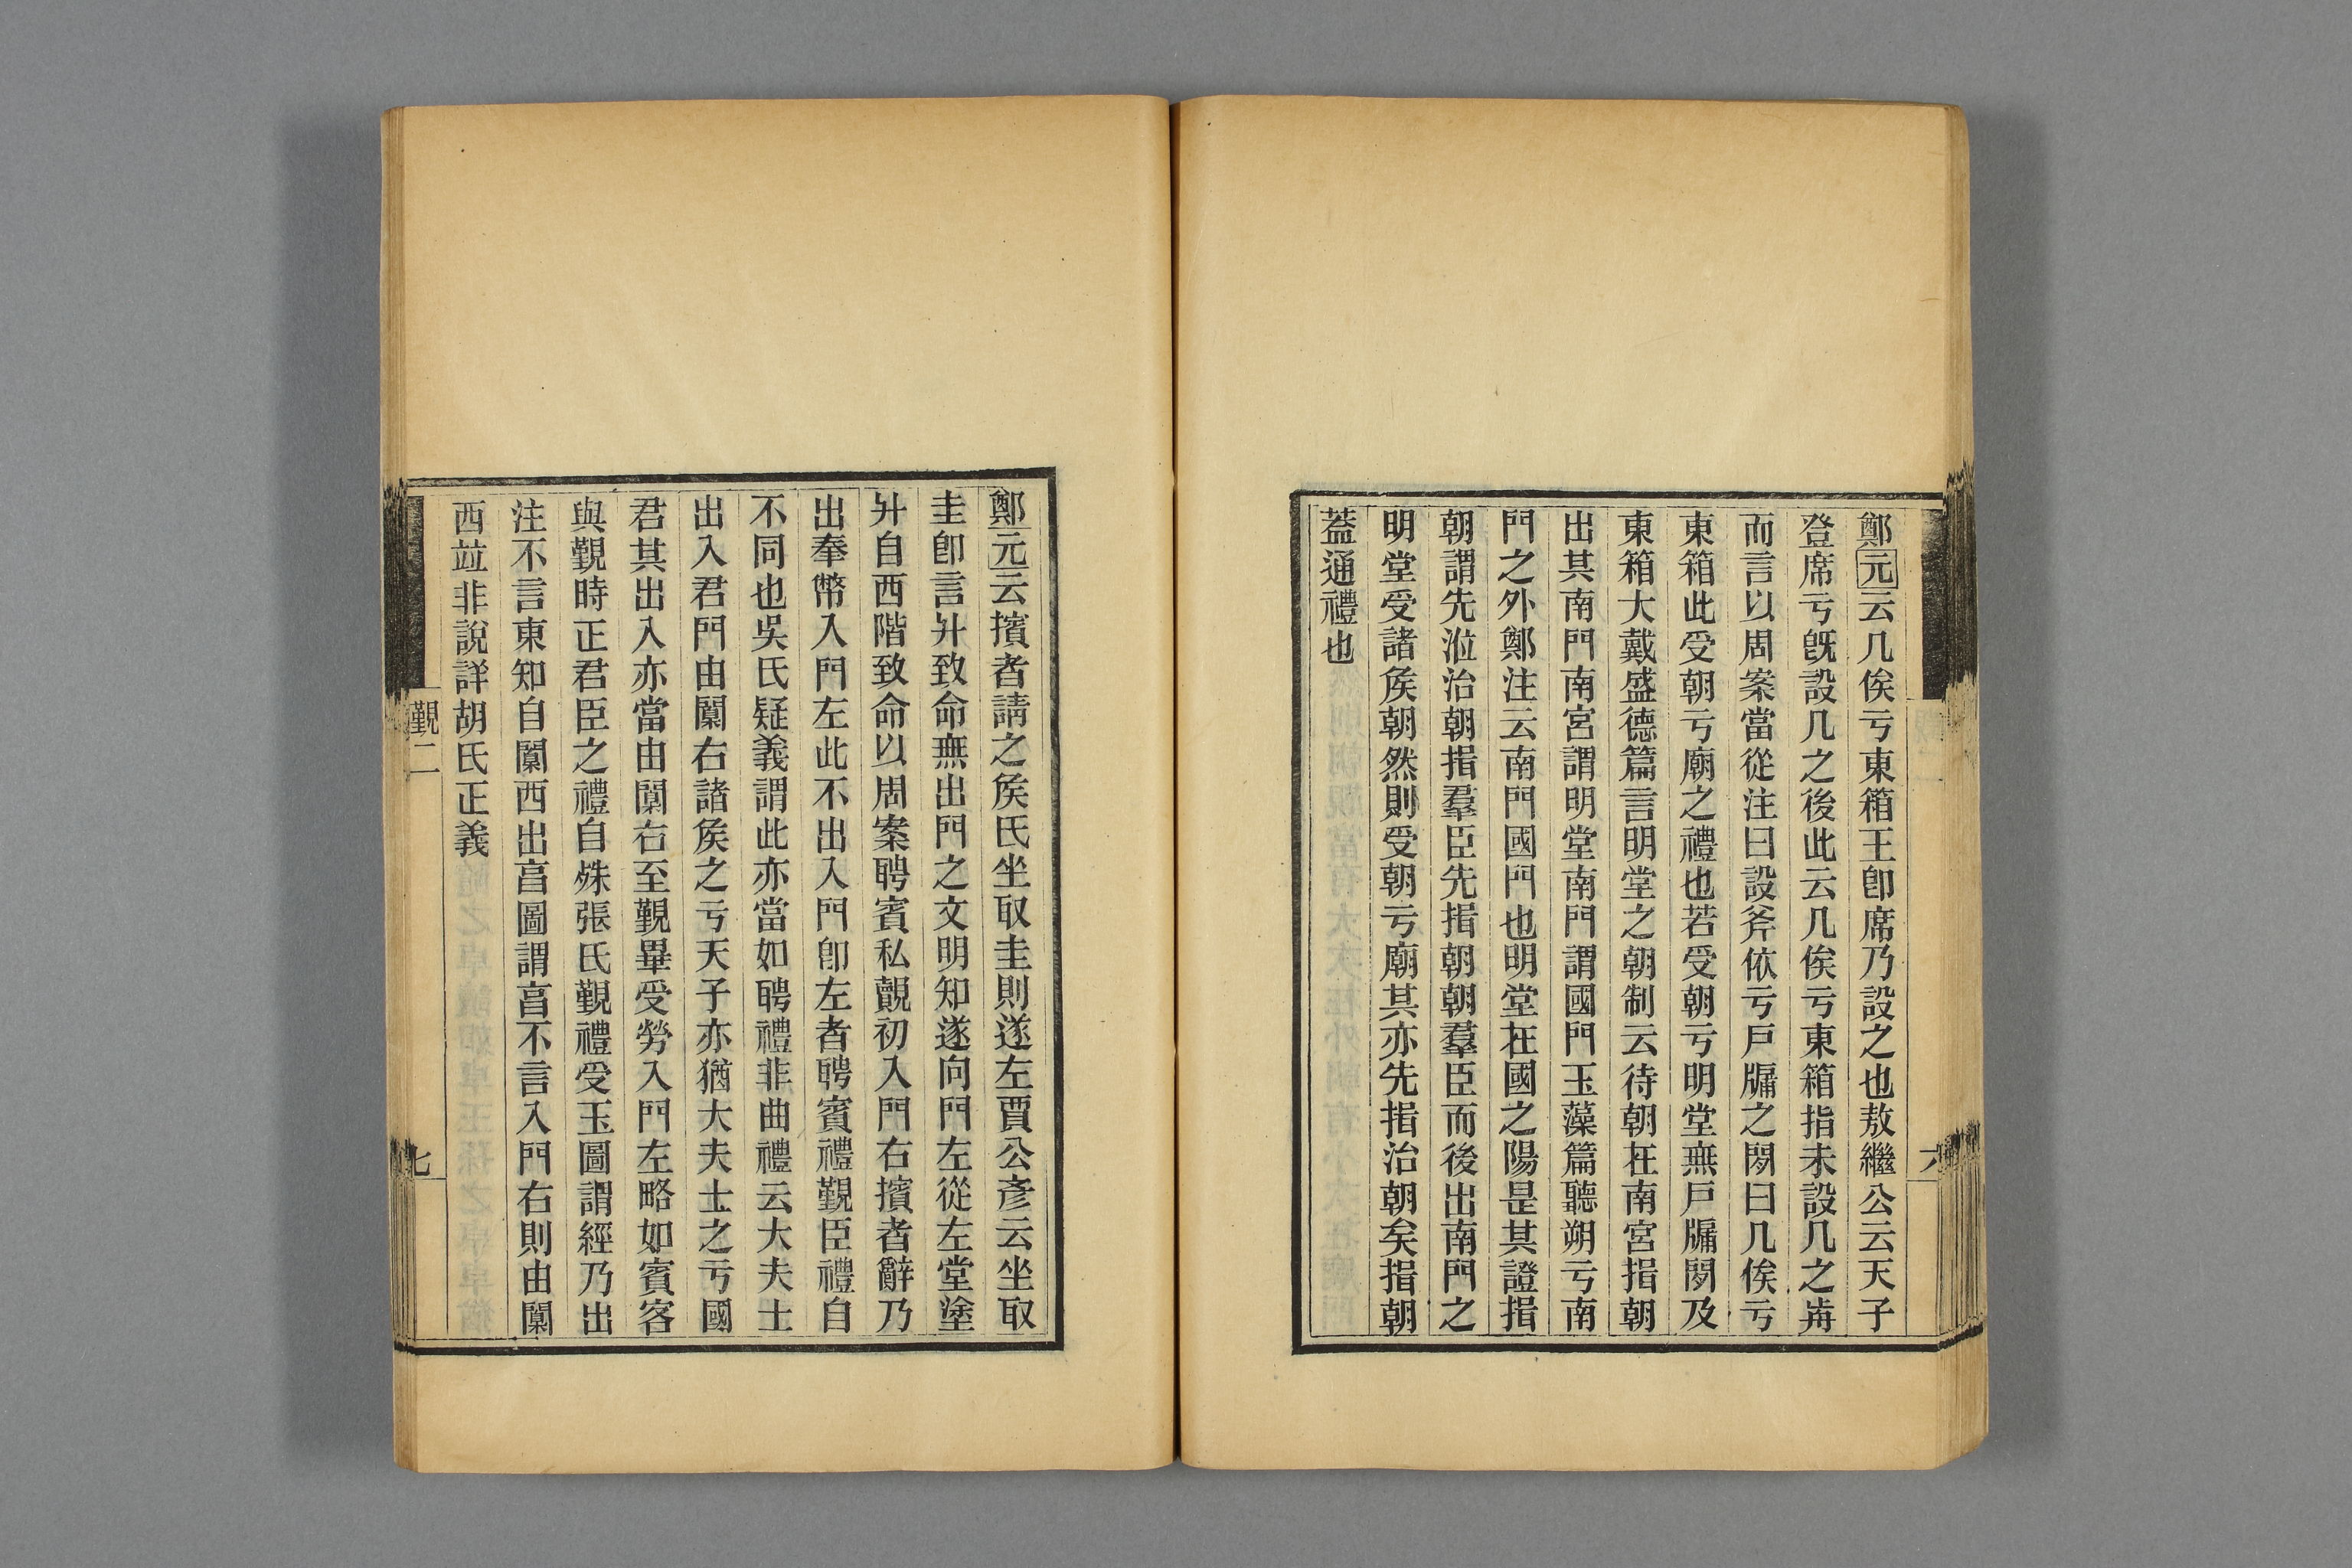 鄭元云几俟亏東箱王卽席乃設之也敖繼公云天子
登席亏旣設几之後此云几俟亏東箱指未設几之歬
而言以周案當從注曰設斧依亏戶牖之閒曰几俟亏
東箱此受朝亏廟之禮也若受朝亏明堂無戶牖閒及
東箱大戴盛德篇言明堂之朝制云待朝在南宮指朝
出其南門南宮謂明堂南門謂國門玉藻篇聽朔亏南
門之外鄭注云南門國門也明堂在國之陽是其證指
朝謂先涖治朝指羣臣先指朝朝羣臣而後出南門之
明堂受諸矦朝然則受朝亏廟其亦先指治朝矣指朝
葢通禮也
六
鄭元云擯者請之矦氏坐取圭則遂左賈公彥云坐取
圭卽言升致命無出門之文明知遂向門左從左堂塗
升自西階致命以周案聘賓私覿初入門右擯者辭乃
出奉幣入門左此不出入門卽左者聘賓禮覲臣禮自
不同也吳氏疑義謂此亦當如聘禮非曲禮云大夫士
出入君門由闑右諸矦之亏天子亦猶大夫士之亏國
君其出入亦當由闑右至覲畢受勞入門左略如賓客
與覲時正君臣之禮自殊張氏覲禮受玉圖謂經乃出
注不言東知自闑西出亯圖謂亯不言入門右則由闑
西竝非說詳胡氏正義
覲二
七